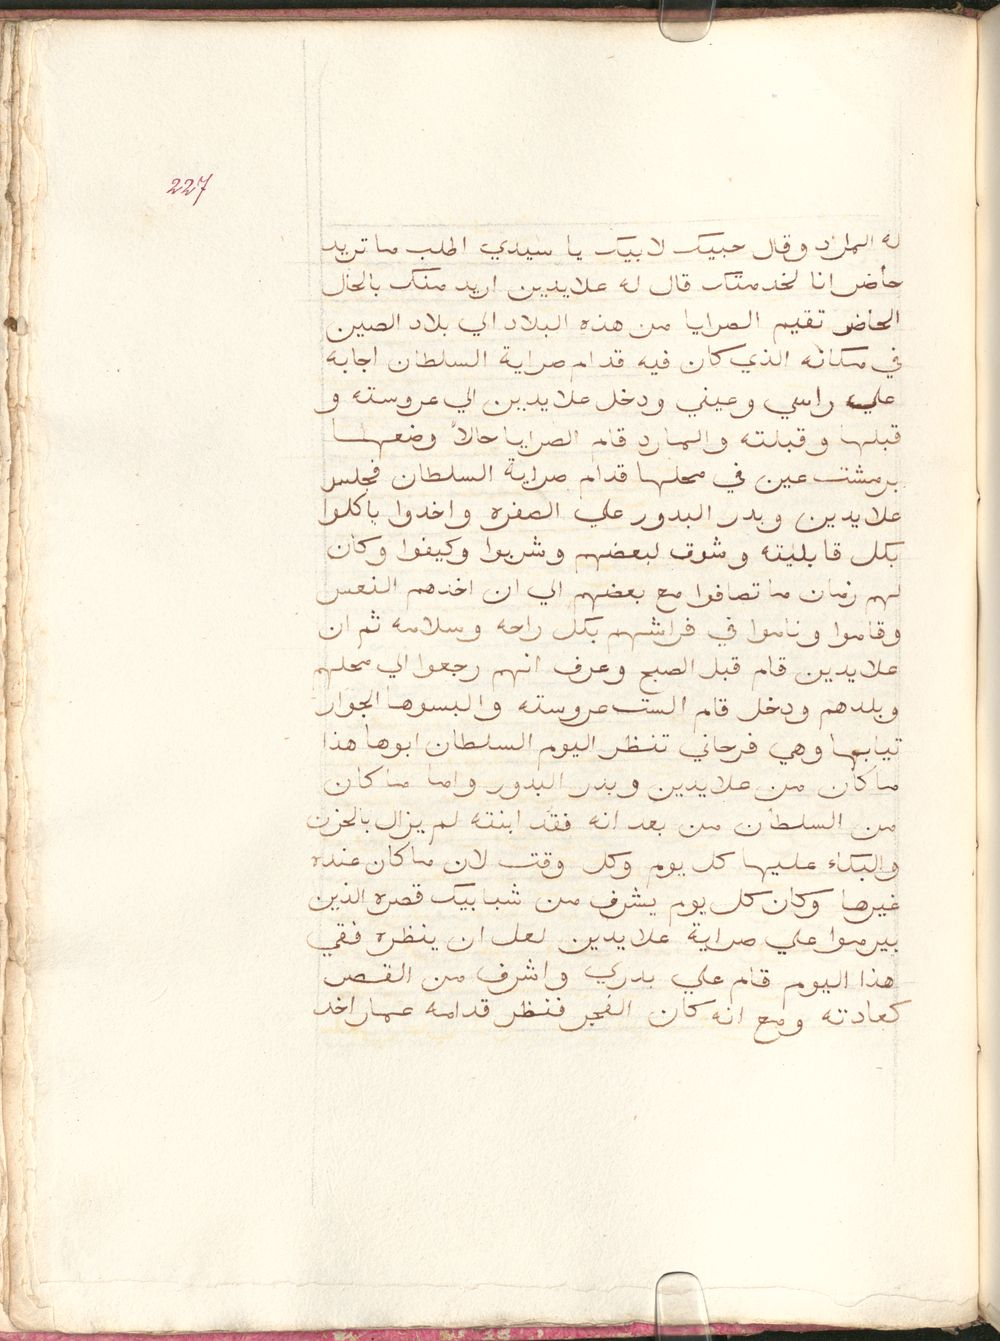 227
له المارد وقال حبيك لابيك يا سيدي اطلب ما تريد
حاضر انا لخدمتك قال له علايدين اريد منك بالحال
الحاضر تقيم الصرايا من هذه البلاد الي بلاد الصين
في مكانه الذي كان فيه قدام صراية السلطان اجابه
علي راسي وعيني ودخل علايدين الي عروسته و
قبلها وقبلته والمارد قام الصرايا حالاً وضعها
برمشت عين في محلها قدام صراية السلطان فجلس
علايدين وبدر البدور علي الصفره واخدوا ياكلوا
بكل قابليته وشوق لبعضهم وشربوا وكيفوا وكان
لهم زمان ما تصافوا مع بعضهم الي ان اخدهم النعس
وقاموا وناموا في فراشهم بكل راحه وسلامه ثم ان
علايدين قام قبل الصبح وعرف انهم رجعوا الي محلهم
وبلدهم ودخل قام الست عروسته والبسوها الجوار
تيابها وهي فرحاني تنظر اليوم السلطان ابوها هذا
ما كان من علايدين وبدر البدور واما ما كان
من السلطان من بعد انه فقد ابنته لم يزال بالحزن
والبكاء عليها كل يوم وكل وقت لان ما كان عنده
غيرها وكان كل يوم يشرف من شبابيك قصره الذين
بيرموا علي صراية علايدين لعل ان ينظره ففي
هذا اليوم قام علي بدري واشرف من القصر
كعادته ومع انه كان الفجر فنظر قدامه عمار اخد